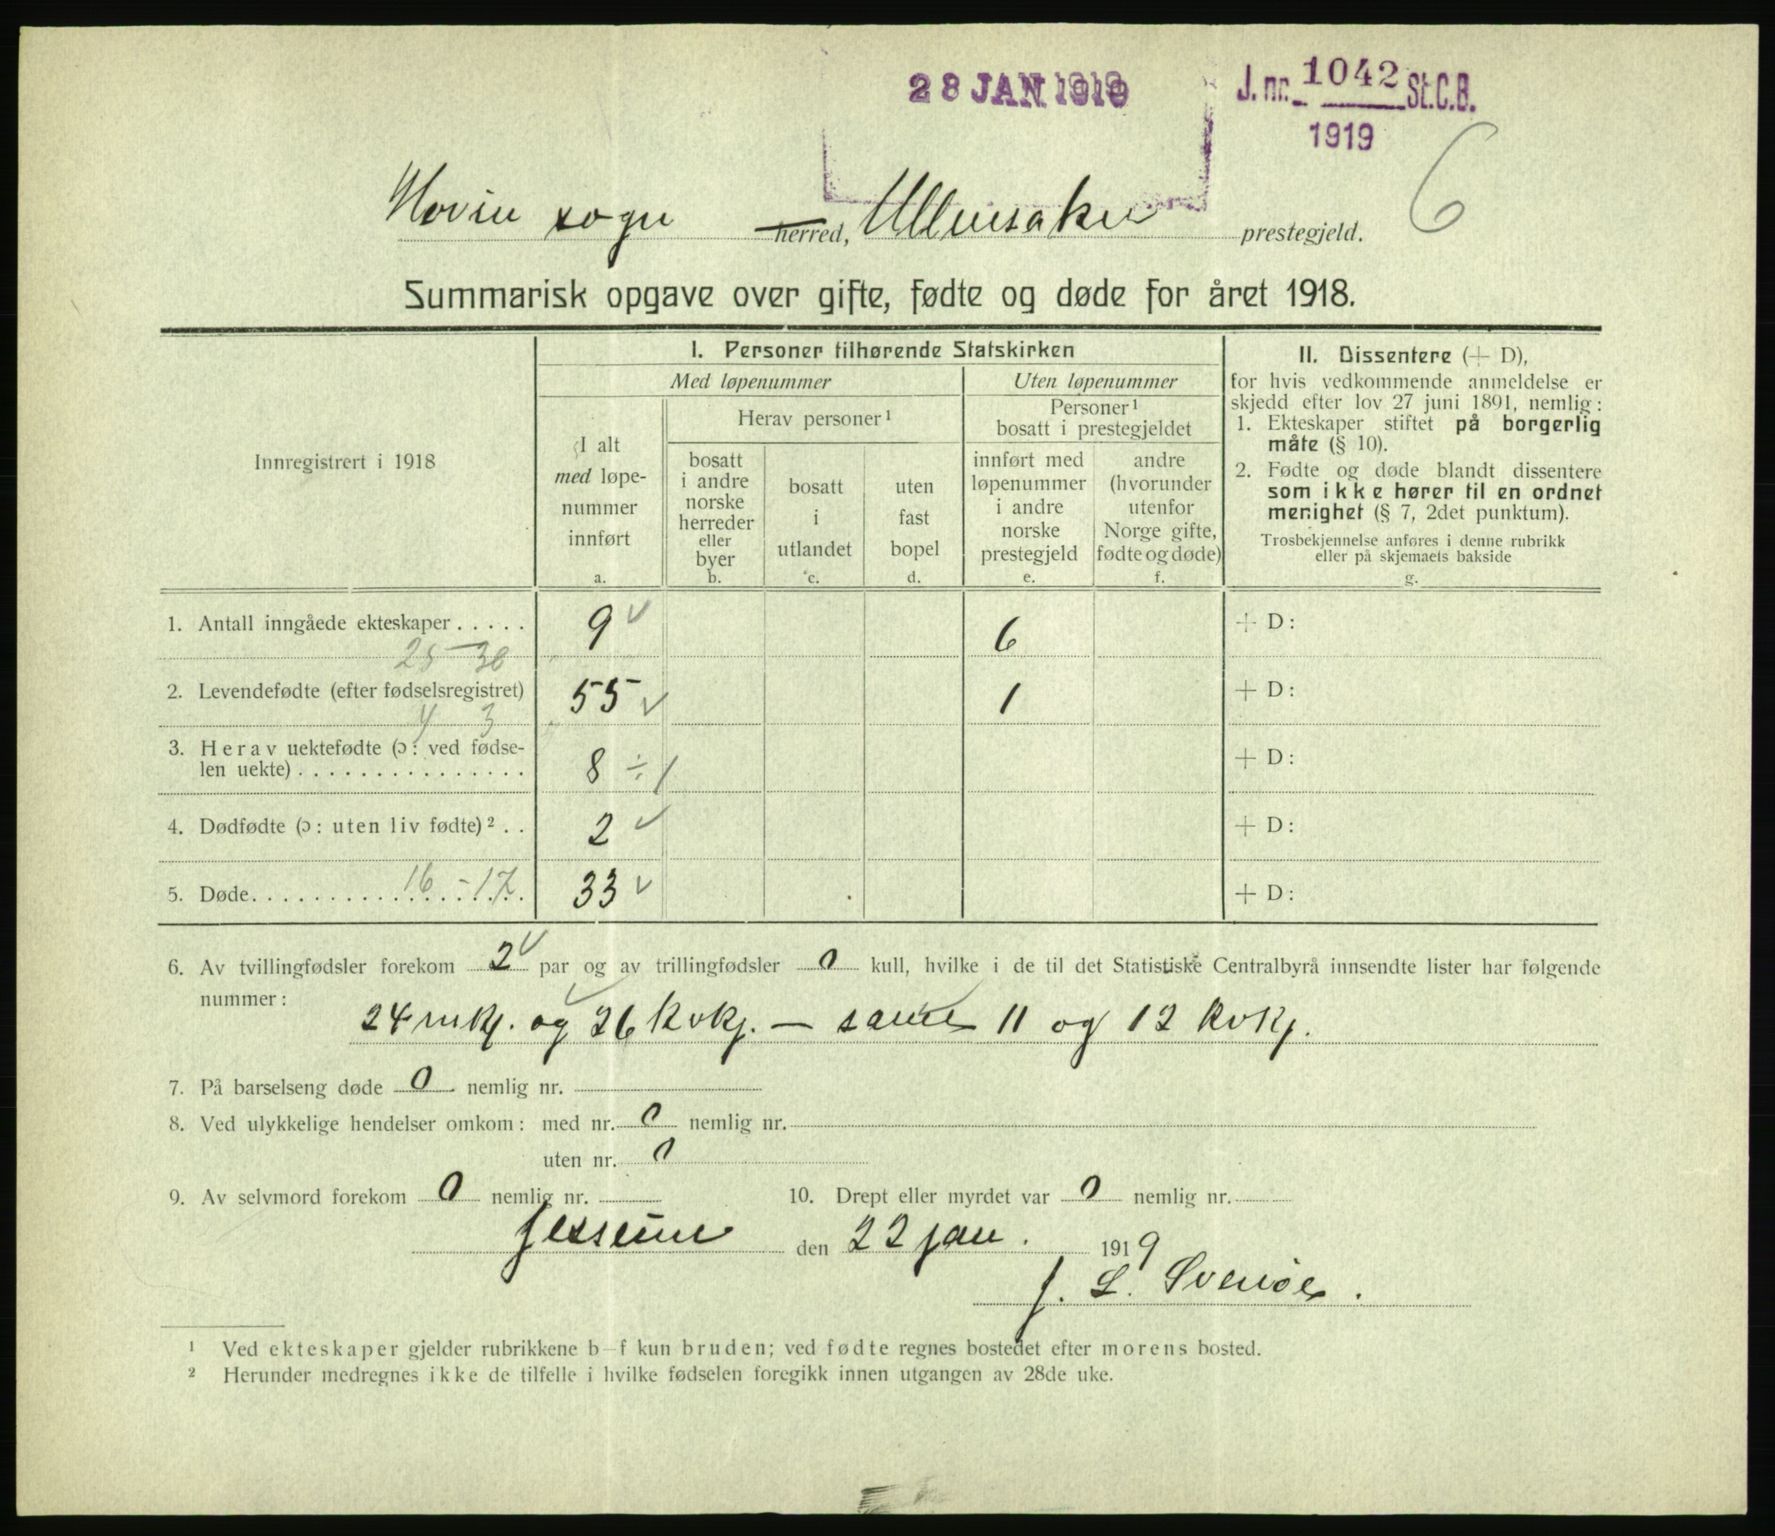 28 JAN 1919
J. nr. 1042 St.C.B.
1919
6
Hovin sogn herred, Ullensaker prestegjeld.
Summarisk opgave over gifte, fødte og døde for året 1918.
Innregistrert i 1918
I. Personer tilhørende Statskirken
Med løpenummer
Uten løpenummer
I alt
med løpe-
nummer
innført
a.
Herav personer¹
bosatt
i andre
norske
herreder
eller
byer
b.
bosatt
i
utlandet
c.
uten
fast
bopel
d.
Personer¹
bosatt i prestegjeldet
innført med
løpenummer
i andre
norske
prestegjeld
e.
andre
(hvorunder
utenfor
Norge gifte,
fødte og døde)
f.
II. Dissentere (+ D),
for hvis vedkommende anmeldelse er
skjedd efter lov 27 juni 1891, nemlig:
1. Ekteskaper stiftet på borgerlig
måte (§ 10).
2. Fødte og døde blandt dissentere
som ikke hører til en ordnet
menighet (§ 7, 2det punktum).
Trosbekjennelse anføres i denne rubrikk
eller på skjemaets bakside
g.
1. Antall inngåede ekteskaper ..... 9 ✓ 6 + D:
25 30
2. Levendefødte (efter fødselsregistret) 55 ✓ 1 + D:
4 3
3. Herav uektefødte (ɔ: ved fødse-
len uekte) ............... 8 ÷ 1 + D:
4. Dødfødte (ɔ: uten liv fødte)² .. 2 ✓ + D:
5. Døde ............ 16 - 17 33 ✓ + D:
6. Av tvillingfødsler forekom 2 ✓ par og av trillingfødsler 0 kull, hvilke i de til det Statistiske Centralbyrå innsendte lister har følgende
nummer:
24 mkj. og 26 kvkj. — samt 11 og 12 kvkj.
7. På barselseng døde 0 nemlig nr.
8. Ved ulykkelige hendelser omkom: med nr. 0 nemlig nr.
uten nr. 0
9. Av selvmord forekom 0 nemlig nr. 10. Drept eller myrdet var 0 nemlig nr.
Jessheim den 22 jan. 1919
J. L. Svenöe.
¹ Ved ekteskaper gjelder rubrikkene b–f kun bruden; ved fødte regnes bostedet efter morens bosted.
² Herunder medregnes ikke de tilfelle i hvilke fødselen foregikk innen utgangen av 28de uke.